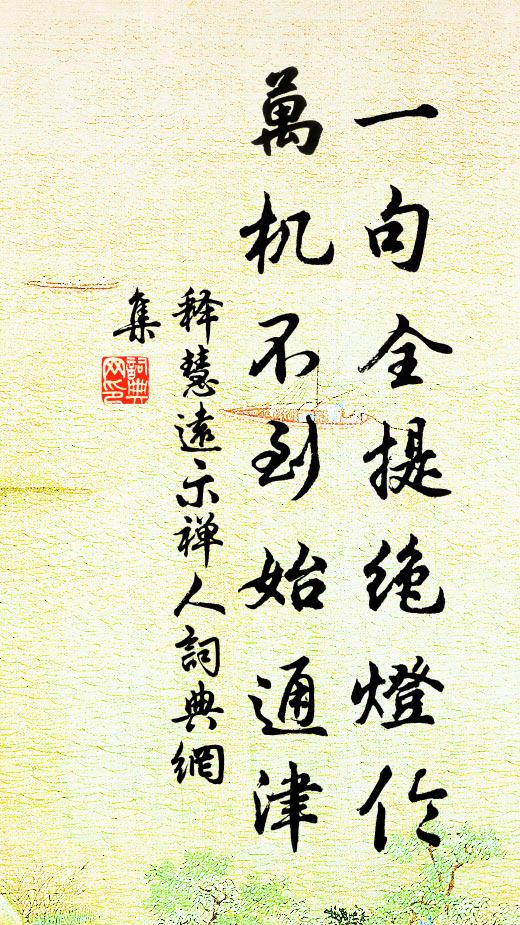 一句全提绝燈伦
萬机不到始通津
释慧遠示禅人詞典網
集
詞典网印